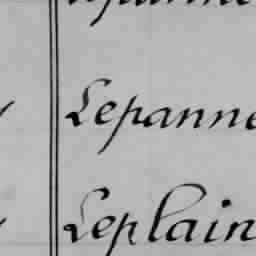 Lepanne
Leplain